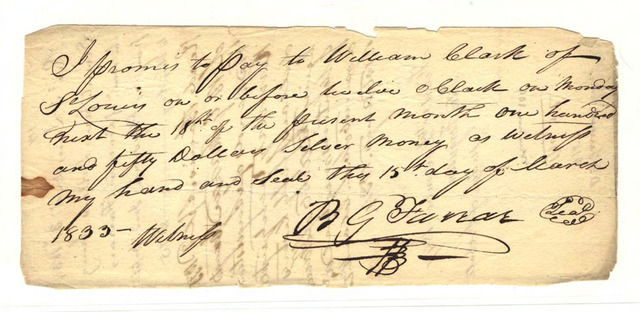 I promis to pay to William Clark of
St Louis on or before twelve oClock on Monday
next the 18th of the present month one hundred
and fifty Dollars Silver Money as witness
my hand and Seal this 15th day of March
1833 - Witness B G Farrar Seal